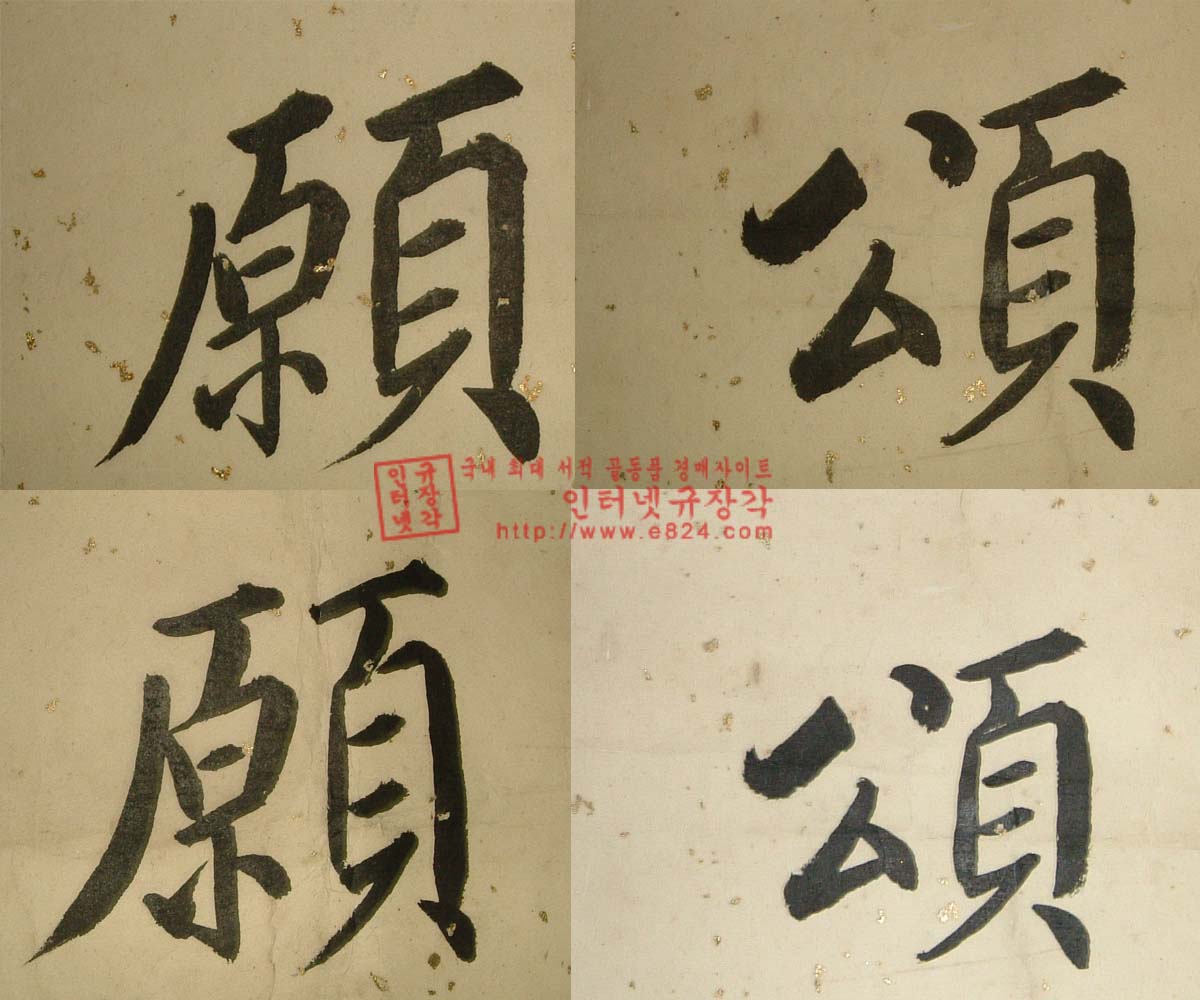 願 頌
국내 최대 서적 골동품 경매사이트
인터넷규장각
인터넷 규장각
http://www.e824.com
願 頌